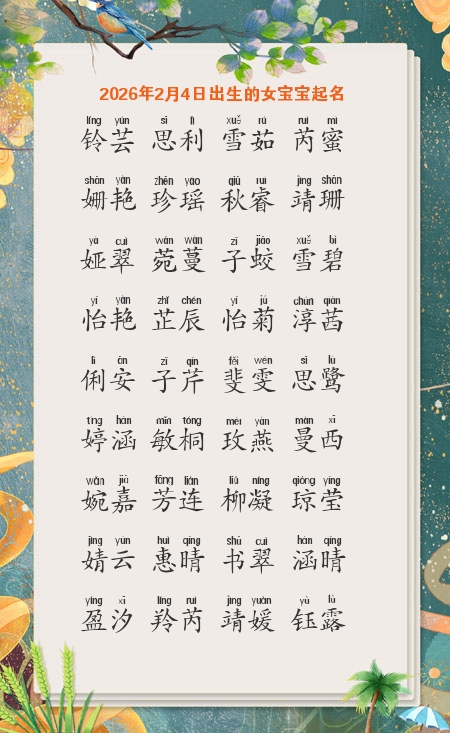 2026年2月4日出生的女宝宝起名
líng yún sī lì xuě rú ruì mì
铃芸 思利 雪茹 芮蜜
shān yàn zhēn yáo qiū ruì jìng shān
姗艳 珍瑶 秋睿 靖珊
yà cuì wǎn wàn zǐ jiāo xuě bì
娅翠 菀蔓 子蛟 雪碧
yí yàn zhǐ chén yí jú chún qiàn
怡艳 芷辰 怡菊 淳茜
lì ān zǐ qín fěi wén sī lù
俐安 子芹 斐雯 思鹭
tíng hán mǐn tóng méi yàn màn xī
婷涵 敏桐 玫燕 曼西
wǎn jiā fāng lián liǔ níng qióng yíng
婉嘉 芳连 柳凝 琼莹
jìng yún huì qíng shū cuì hán qíng
婧云 惠晴 书翠 涵晴
yíng xī líng ruì jìng yuán yù lù
盈汐 羚芮 靖媛 钰露